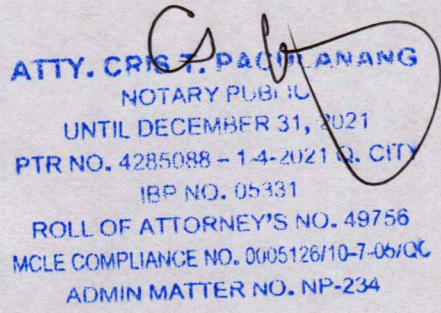 ATTY. CRIS T. PACULANANG
NOTARY PUBLIC
UNTIL DECEMBER 31, 2021
PTR NO. 4285088 - 1-4-2021 Q. CITY
IBP NO. 05331
ROLL OF ATTORNEY'S NO. 49756
MCLE COMPLIANCE NO. 0005126/10-7-05/QC
ADMIN MATTER NO. NP-234